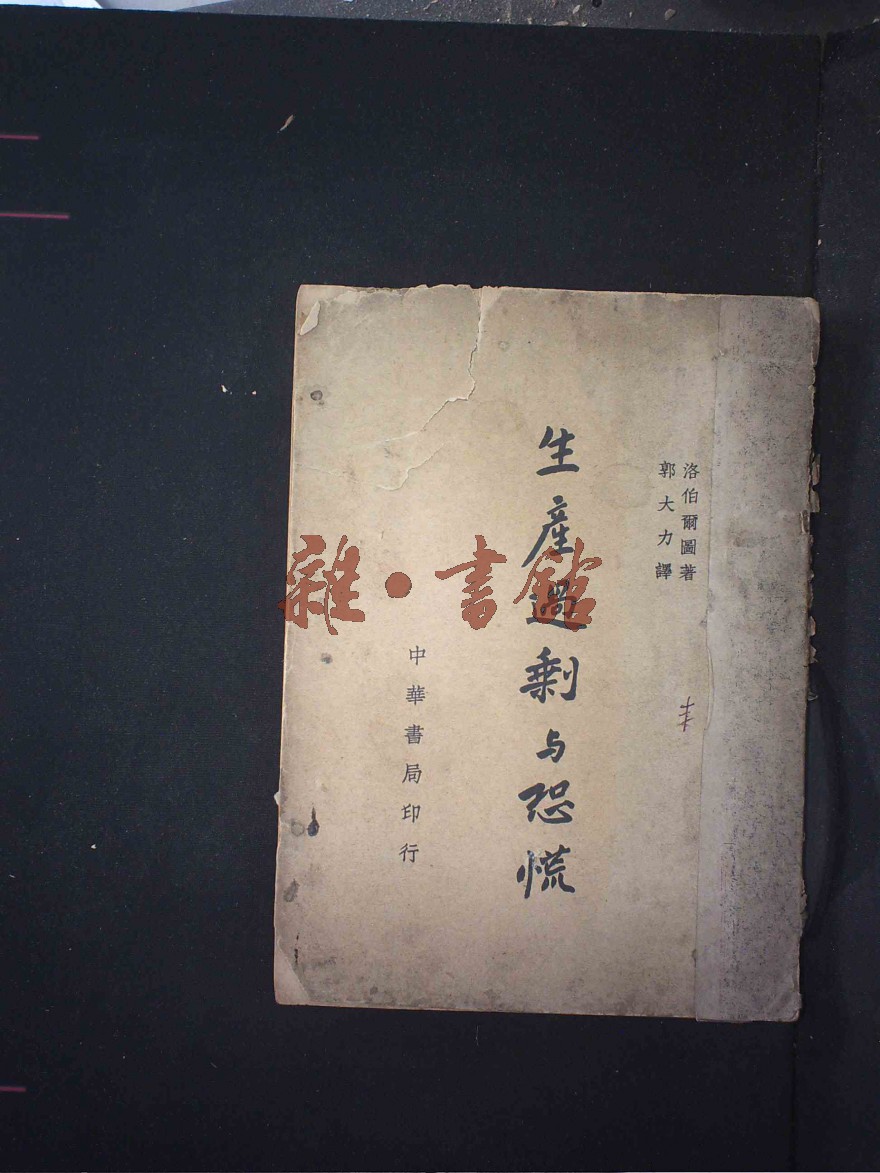 洛伯爾圖著
郭大力譯
生產過剩与恐慌
中華書局印行
雜·書館